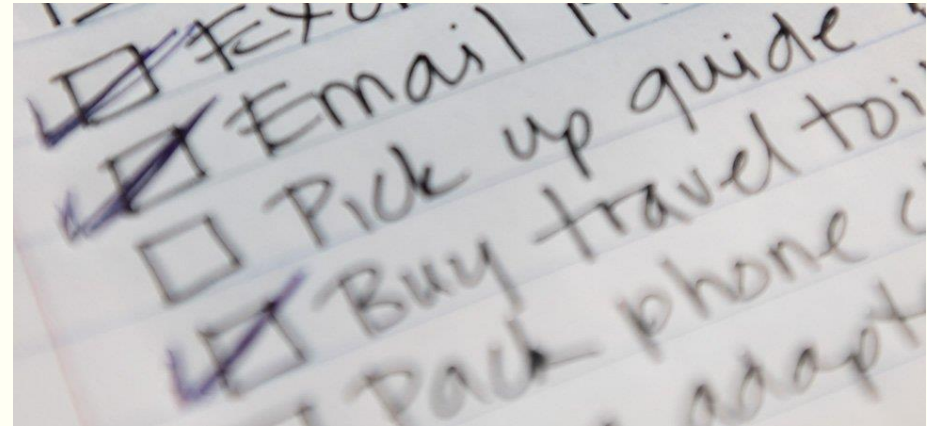 Email
Pick up guide
Buy travel
Pack phone
adapt